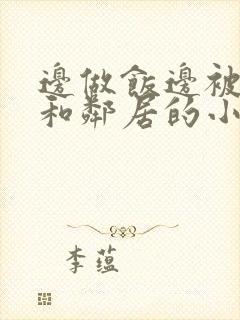 邊做飯邊被
和鄰居的小
李蕴